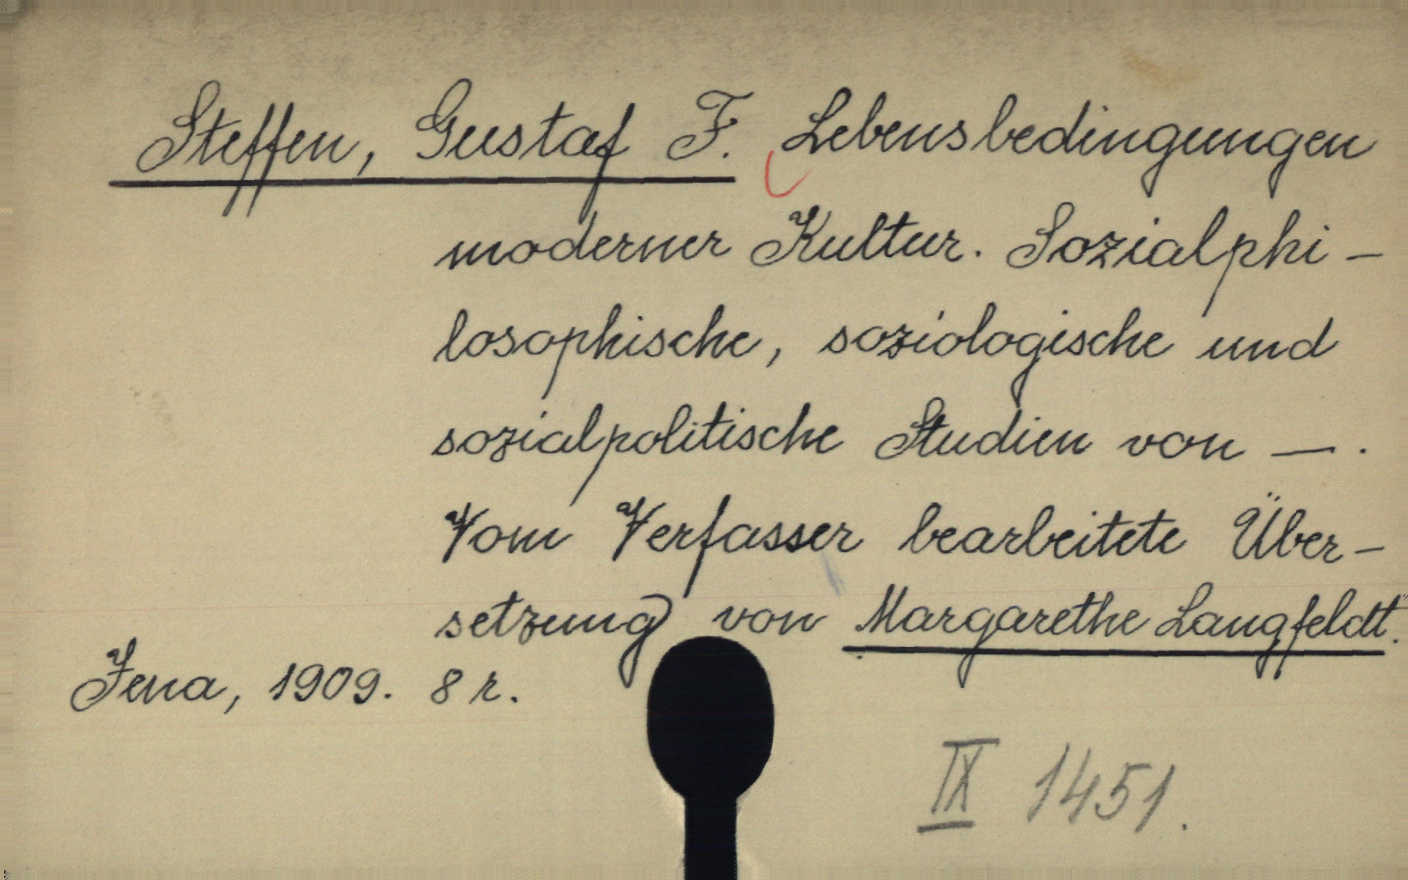 Steffen, Gustaf F. Lebensbedingungen
moderner Kultur. Sozialphi-
losophische, soziologische und
sozialpolitische Studien von —.
Vom Verfasser bearbeitete Über-
setzung von Margarethe Langfeldt.
Jena, 1909. 8 r.
IX 1451.